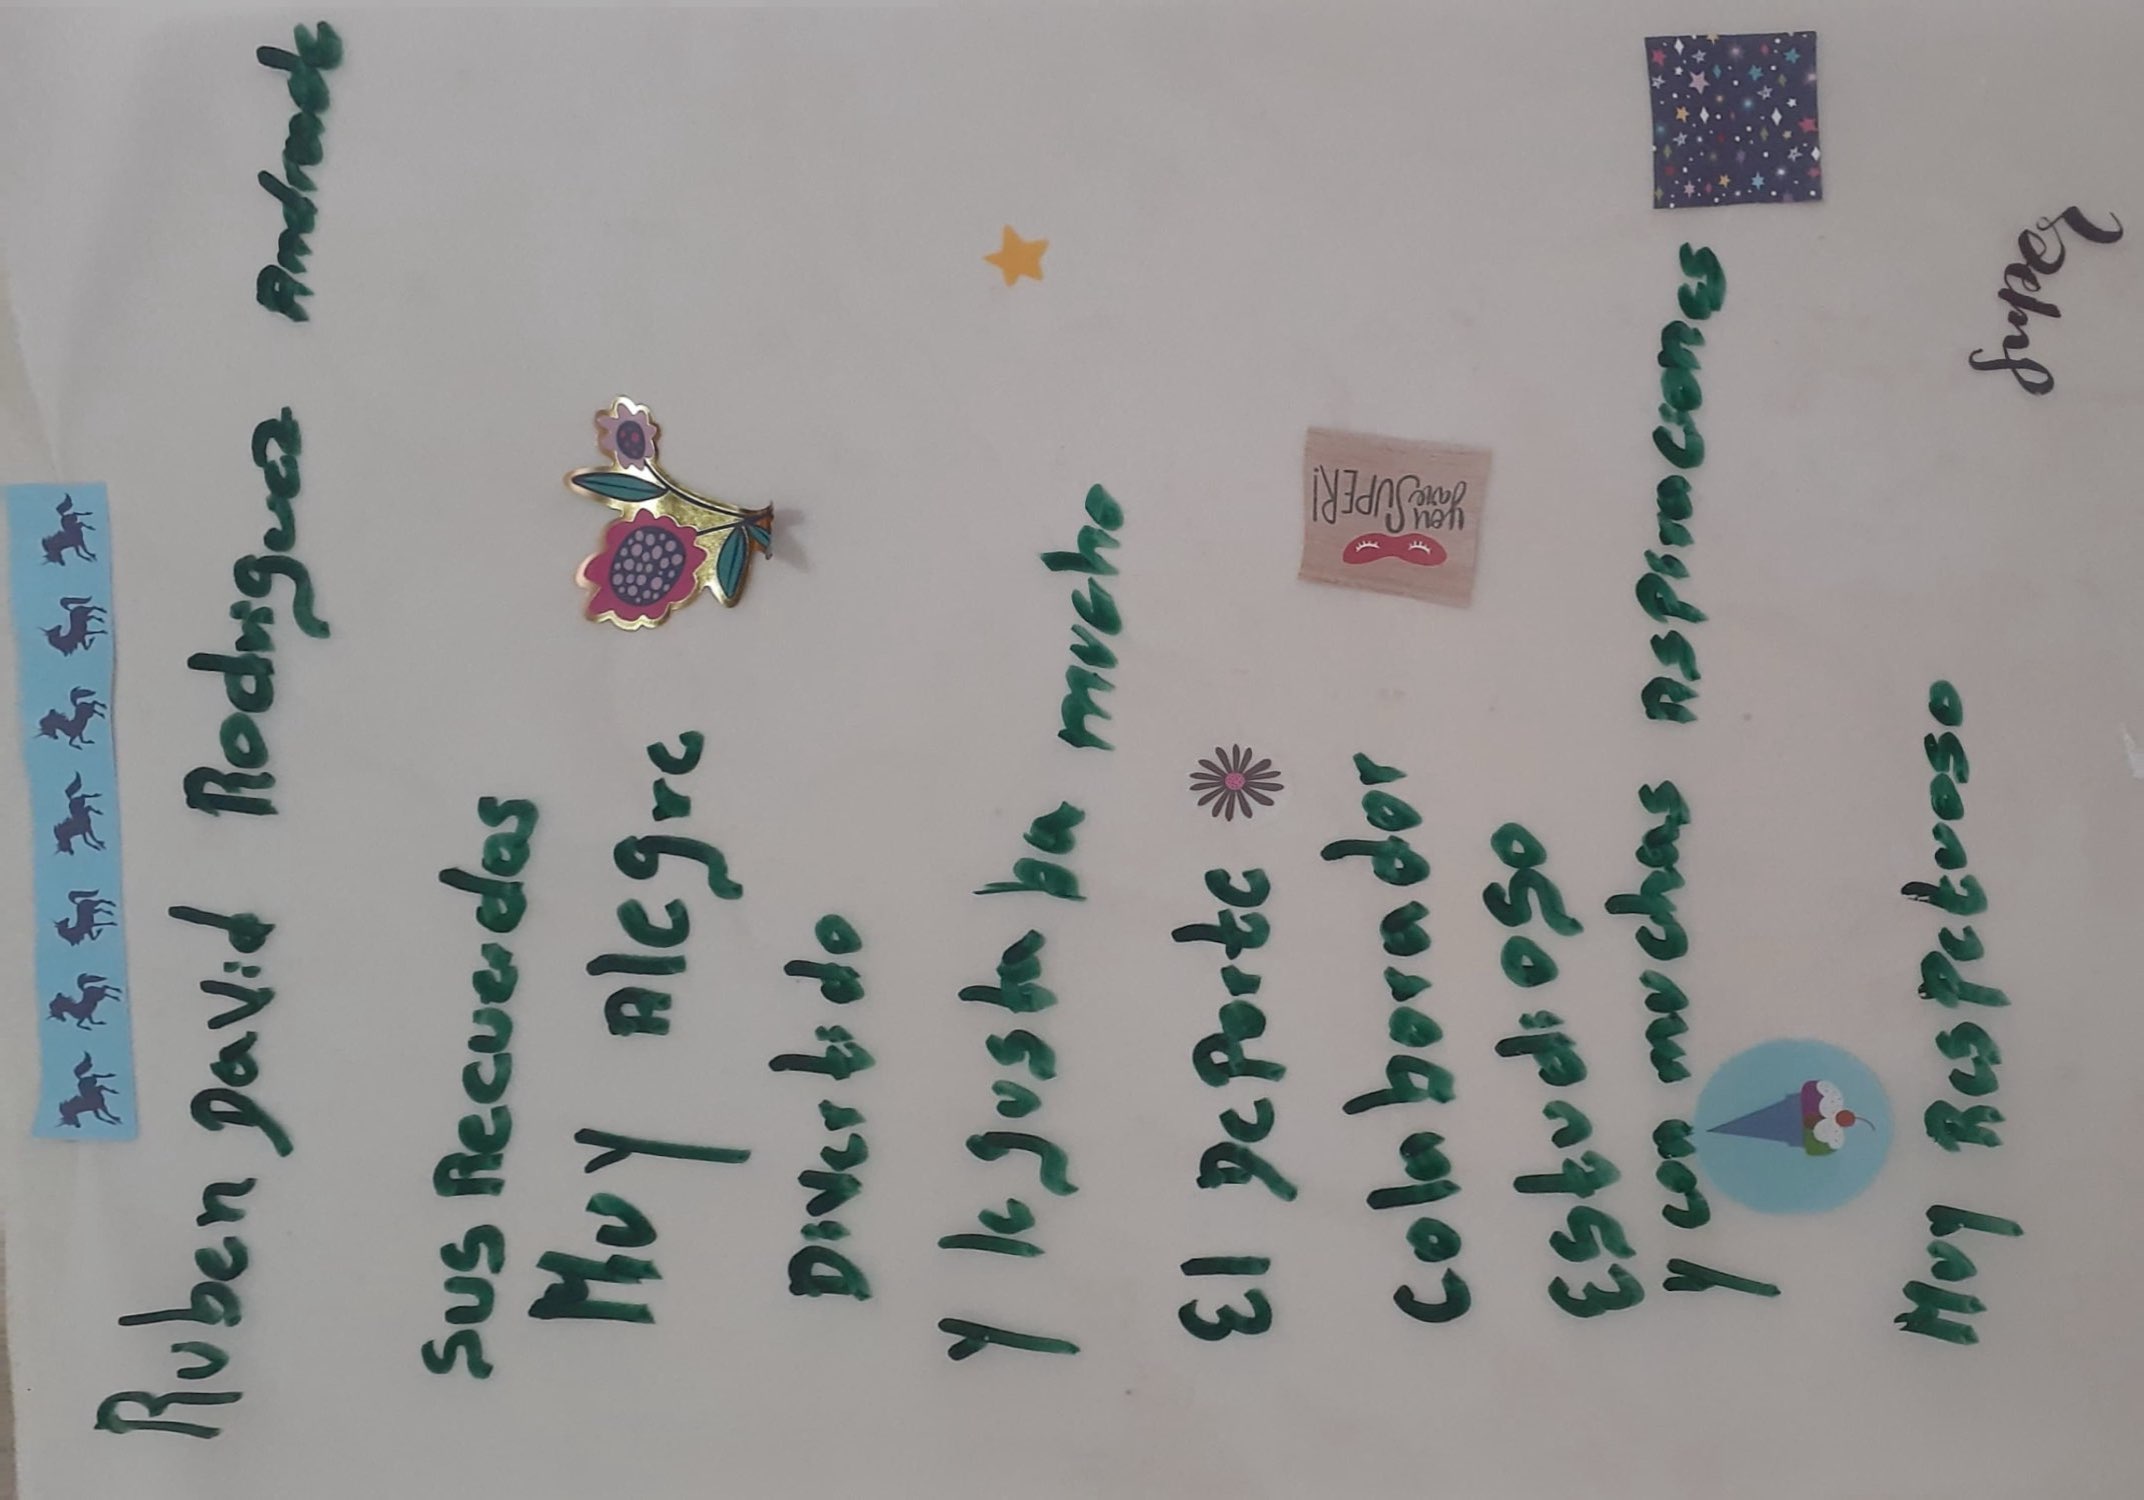 Ruben David Rodriguez Andrade
Sus Recuerdas
Muy Alegre
Divertido
y le gustaba mucho
El Deporte
you are SUPER!
Colaborador
Estudioso
y con muchas aspiraciones
Muy Respetuoso